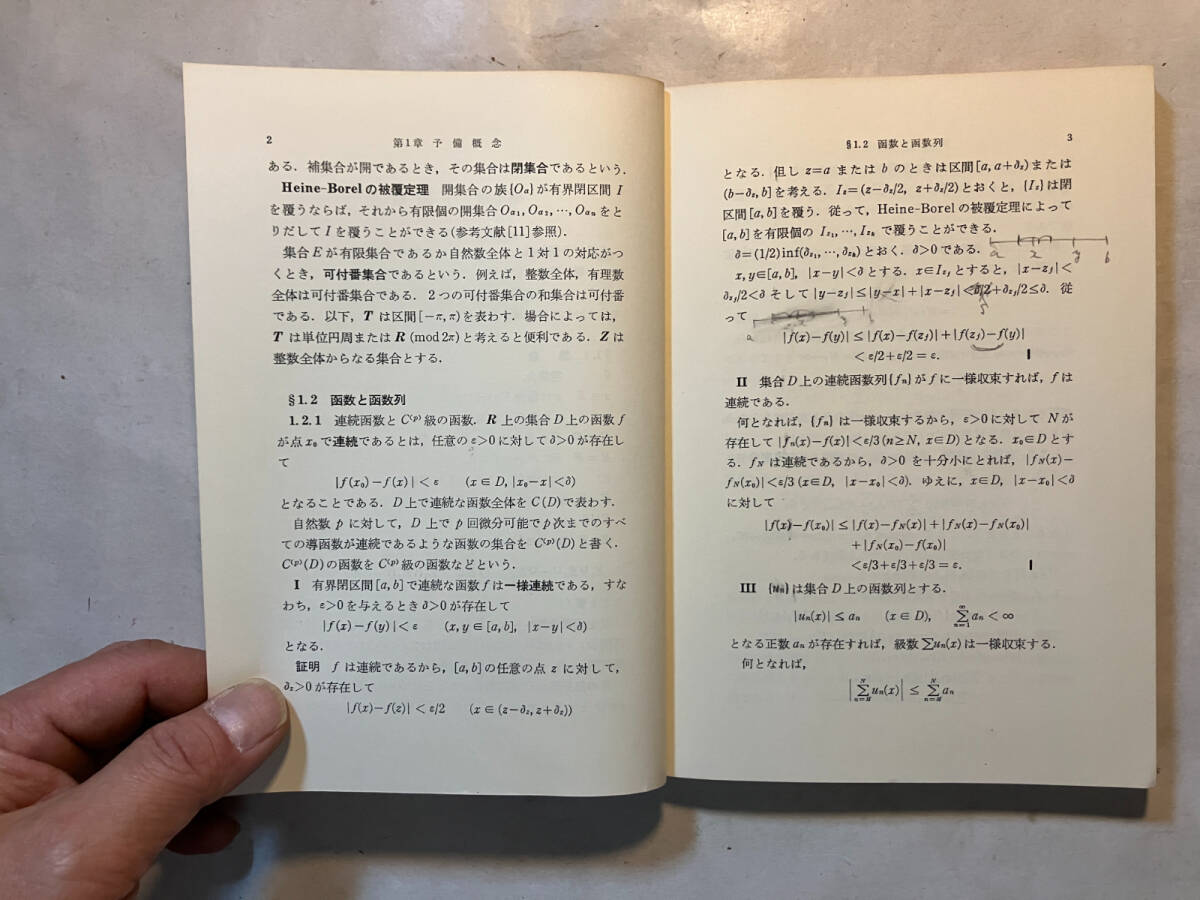 2
第1章 予備概念
ある．補集合が開であるとき，その集合は閉集合であるという．
Heine-Borelの被覆定理 開集合の族{Oα}が有界閉区間 I
を覆うならば，それから有限個の開集合Oα₁, Oα₂, …, Oαₙをと
りだして I を覆うことができる(参考文献[11]参照)．
集合Eが有限集合であるか自然数全体と1対1の対応がつ
くとき，可付番集合であるという．例えば，整数全体，有理数
全体は可付番集合である．2つの可付番集合の和集合は可付番
である．以下，T は区間[−π, π)を表わす．場合によっては，
T は単位円周または R (mod 2π)と考えると便利である．Z は
整数全体からなる集合とする．
§1.2 函数と函数列
1.2.1 連続函数と C⁽ᵖ⁾ 級の函数．R 上の集合 D 上の函数 f
が点 x₀ で連続であるとは，任意の ε>0 に対して ∂>0 が存在し
て
|f(x₀)−f(x)| < ε (x∈D, |x₀−x|<∂)
となることである．D上で連続な函数全体を C(D) で表わす．
自然数 p に対して，D 上で p 回微分可能で p 次までのすべ
ての導函数が連続であるような函数の集合を C⁽ᵖ⁾(D) と書く．
C⁽ᵖ⁾(D) の函数を C⁽ᵖ⁾ 級の函数などという．
I 有界閉区間[a, b]で連続な函数 f は一様連続である，すな
わち，ε>0 を与えるとき ∂>0 が存在して
|f(x)−f(y)| < ε (x, y∈[a, b], |x−y|<∂)
となる．
証明 f は連続であるから，[a, b]の任意の点 z に対して，
∂z>0 が存在して
|f(x)−f(z)| < ε/2 (x∈(z−∂z, z+∂z))
§1.2 函数と函数列
3
となる．但し z=a または b のときは区間[a, a+∂z)または
(b−∂z, b]を考える．Iz=(z−∂z/2, z+∂z/2)とおくと，{Iz}は閉
区間[a, b]を覆う．従って，Heine-Borelの被覆定理によって
[a, b]を有限個の Iz₁, …, Izₖ で覆うことができる．
∂=(1/2)inf(∂z₁, …, ∂zₖ)とおく．∂>0 である．
a x y b
x, y∈[a, b], |x−y|<∂ とする．x∈Izⱼ とすると，|x−zⱼ|<
∂zⱼ/2<∂ そして |y−zⱼ|≤|y−x|+|x−zⱼ|<∂/2+∂zⱼ/2≤∂．従
って
a
|f(x)−f(y)| ≤ |f(x)−f(zⱼ)|+|f(zⱼ)−f(y)|
< ε/2+ε/2 = ε.
II 集合D上の連続函数列{fₙ}が f に一様収束すれば，f は
連続である．
何となれば，{fₙ}は一様収束するから，ε>0 に対して N が
存在して |fₙ(x)−f(x)|<ε/3 (n≥N, x∈D)となる．x₀∈D とす
る．f_N は連続であるから，∂>0 を十分小にとれば，|f_N(x)−
f_N(x₀)|<ε/3 (x∈D, |x−x₀|<∂)．ゆえに，x∈D, |x−x₀|<∂
に対して
|f(x)−f(x₀)| ≤ |f(x)−f_N(x)|+|f_N(x)−f_N(x₀)|
+|f_N(x₀)−f(x₀)|
<ε/3+ε/3+ε/3 = ε.
III {uₙ}は集合 D 上の函数列とする．
|uₙ(x)| ≤ aₙ (x∈D), ∑_{n=1}^{∞} aₙ < ∞
となる正数 aₙ が存在すれば，級数 ∑uₙ(x) は一様収束する．
何となれば，
|∑_{n=M}^{N} uₙ(x)| ≤ ∑_{n=M}^{N} aₙ